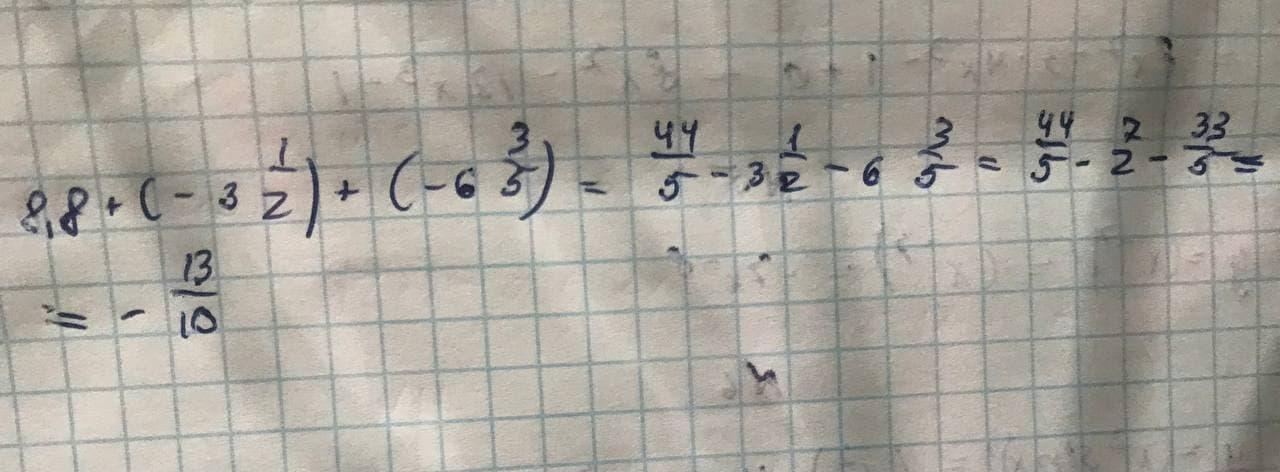 8,8 + (- 3 1/2) + (-6 3/5) = 44/5 - 3 1/2 - 6 3/5 = 44/5 - 7/2 - 33/5 =
= - 13/10